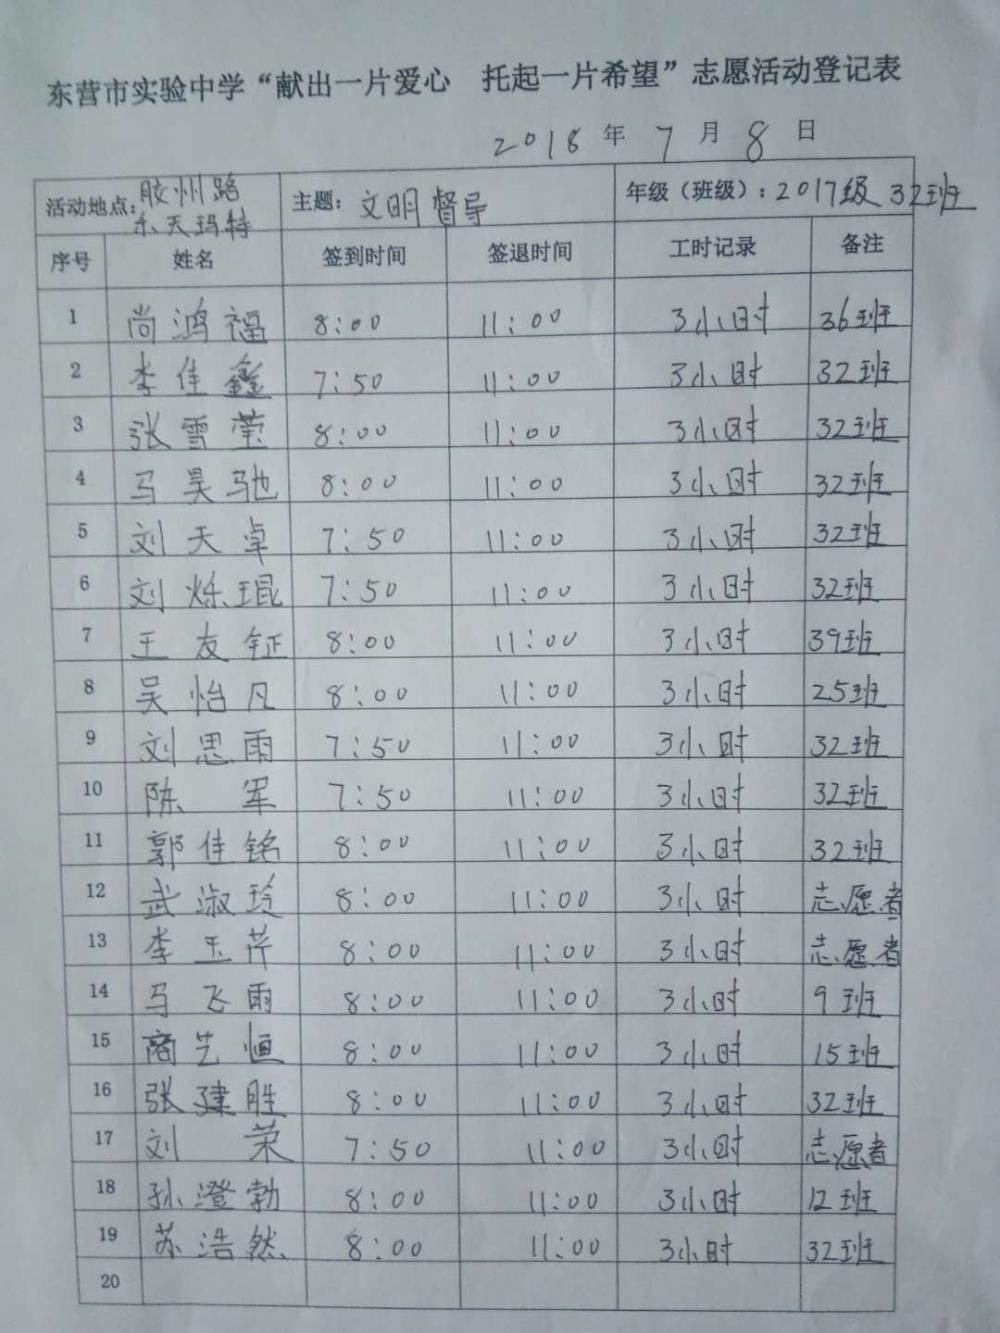 东营市实验中学“献出一片爱心 托起一片希望”志愿活动登记表
2018 年 7 月 8 日
活动地点:胶州路乐天玛特 主题: 文明督导 年级（班级）: 2017级 32班
序号 姓名 签到时间 签退时间 工时记录 备注
1 尚鸿福 8:00 11:00 3小时 36班
2 李佳鑫 7:50 11:00 3小时 32班
3 张雪莹 8:00 11:00 3小时 32班
4 马昊驰 8:00 11:00 3小时 32班
5 刘天卓 7:50 11:00 3小时 32班
6 刘烁琨 7:50 11:00 3小时 32班
7 王友钲 8:00 11:00 3小时 39班
8 吴怡凡 8:00 11:00 3小时 25班
9 刘思雨 7:50 11:00 3小时 32班
10 陈军 7:50 11:00 3小时 32班
11 郭佳铭 8:00 11:00 3小时 32班
12 武淑玲 8:00 11:00 3小时 志愿者
13 李玉芹 8:00 11:00 3小时 志愿者
14 马飞雨 8:00 11:00 3小时 9班
15 商艺恒 8:00 11:00 3小时 15班
16 张建胜 8:00 11:00 3小时 32班
17 刘荣 7:50 11:00 3小时 志愿者
18 孙澄勃 8:00 11:00 3小时 12班
19 苏浩然 8:00 11:00 3小时 32班
20